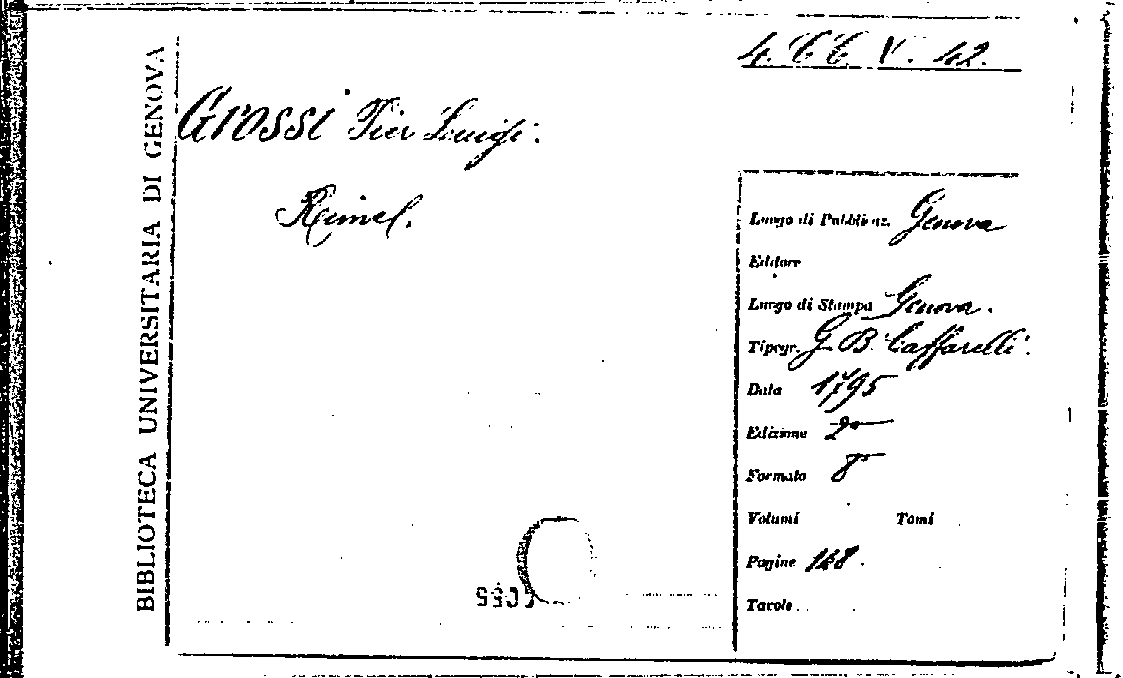 4. C C V. 42.
BIBLIOTECA UNIVERSITARIA DI GENOVA
Grossi Pier Luigi.
Luogo di Pubblicaz. Genova
Editore
Luogo di Stampa Genova.
Tipogr. G. B. Caffarelli.
Data 1795
Edizione 2ª
Formato 8º
Volumi Tomi
Pagine 148.
Tavole